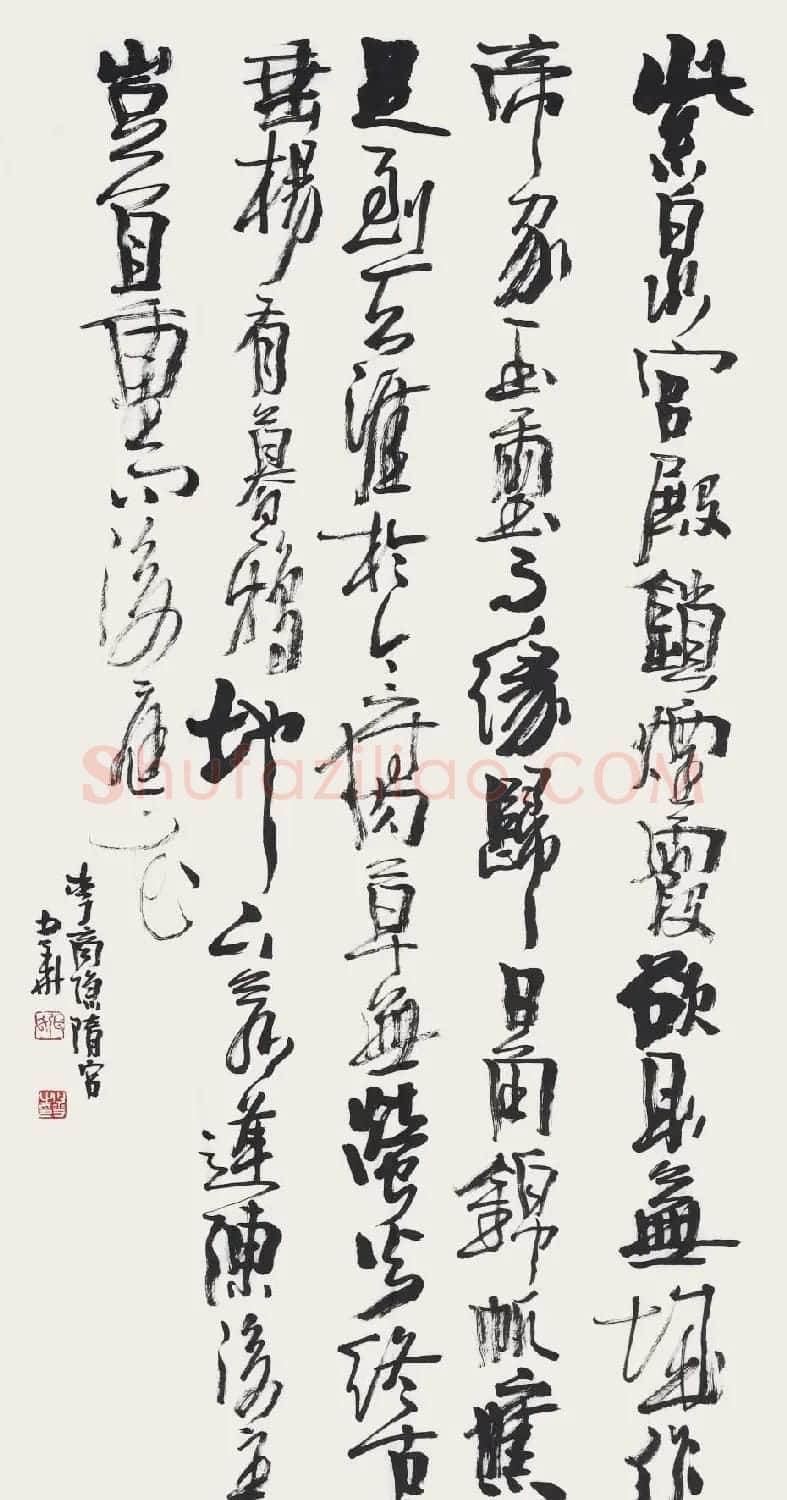 紫泉宮殿鎖煙霞欲取蕪城作
帝家玉璽不緣歸日角錦帆應
是到天涯於今腐草無螢火終古
垂楊有暮鴉地下若逢陳後主
豈宜重問後庭花
李商隱隋宮
Shufaziliao.COM